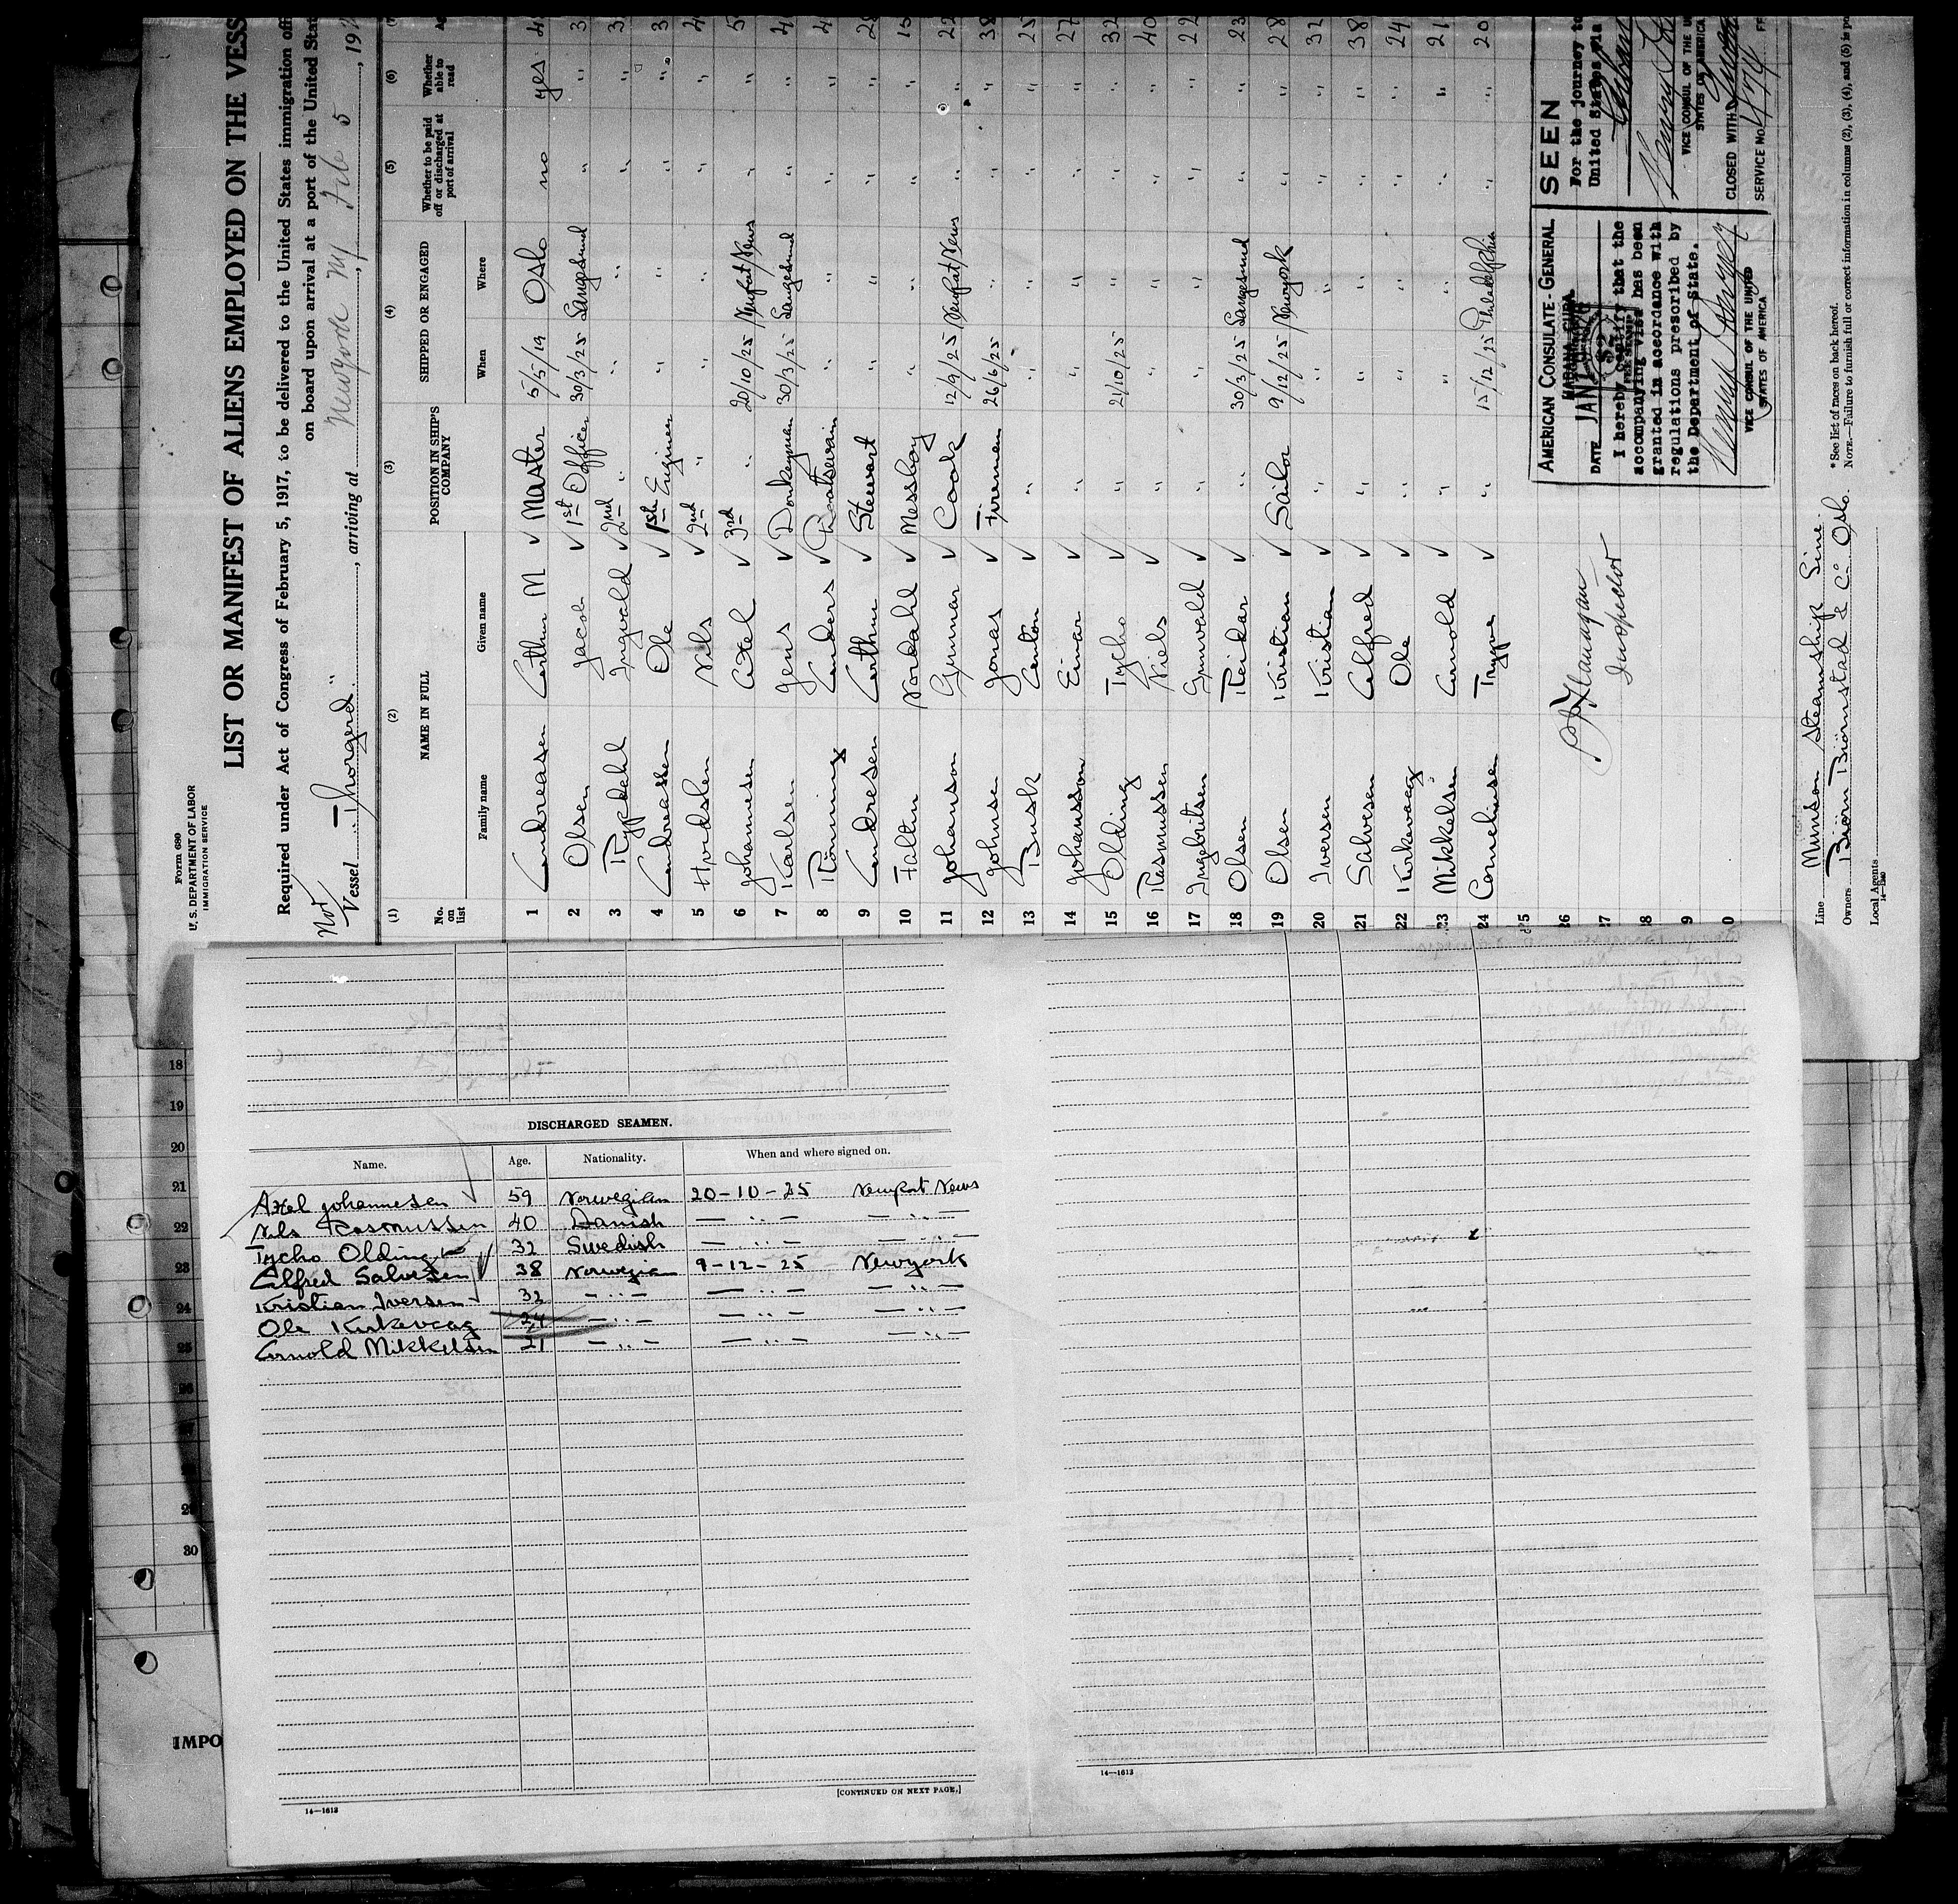 Form 680
U. S. DEPARTMENT OF LABOR
IMMIGRATION SERVICE
LIST OR MANIFEST OF ALIENS EMPLOYED ON THE VESS
Required under Act of Congress of February 5, 1917, to be delivered to the United States immigration offi
on board upon arrival at a port of the United Stat
Nor
Vessel "Thorgerd", arriving at Newyork Feb 5, 192
(1) (2) (3) (4) (5) (6)
No. on list NAME IN FULL POSITION IN SHIP'S COMPANY SHIPPED OR ENGAGED Whether to be paid off or discharged at port of arrival Whether able to read
Family name Given name When Where
1 Andreasen Arthur M ✓ Master 5/5/19 Oslo no yes
2 Olsen Jacob ✓ 1st Officer 30/3/25 Langesund " "
3 Rypdahl Ingvald ✓ 2nd " " " " "
4 Andreassen Ole ✓ 1st Engineer " " " "
5 Nils ✓ 2nd " " " " "
6 Johannesen Axel ✓ 3rd " 20/10/25 Newport News " "
7 Karlsen Jens ✓ Donkeyman 30/3/25 Langesund " "
8 Rönning Anders ✓ Boatswain " " " "
9 Andresen Arthur ✓ Stewart " " " "
10 Faltin Nordahl ✓ Messboy " " " "
11 Johanson Gunnar ✓ Cook 12/9/25 Newport News " " 22
12 Johnse Jonas ✓ Firemen 26/6/25 " " " 38
13 Busk Anton ✓ " " " " " 25
14 Johansson Einar ✓ " " " " " 27
15 Olding Tycho ✓ " 21/10/25 " " " 32
16 Rasmussen Niels ✓ " " " " " 40
17 Ingebritsen Grunvald ✓ " " " " " 22
18 Olsen Reidar ✓ " 30/3/25 Langesund " " 23
19 Olsen Kristian ✓ Sailor 9/12/25 Newyork " " 28
20 Iversen Kristian ✓ " " " " " 32
21 Salvesen Alfred ✓ " " " " " 38
22 Kirkevaag Ole ✓ " " " " " 24
23 Mikkelsen Arnold ✓ " " " " " 21
24 Corneliusen Trygve ✓ " 15/12/25 Philadelphia " " 20
25
26
27
28
9
0
Flanagan
Inspector
AMERICAN CONSULATE-GENERAL
HABANA, CUBA
DATE JAN
$2
I hereby certify that the
accompanying visa has been
granted in accordance with
regulations prescribed by
the Department of State.
VICE CONSUL OF THE UNITED
STATES OF AMERICA
SEEN
For the journey to
United States via
VICE CONSUL OF THE U
STATES OF AMERICA
CLOSED WITH
SERVICE NO. 4174
Line Munson Steamship Line.
Owners Biörn Biörnstad & Co. Oslo.
Local Agents
* See list of races on back hereof.
NOTE.—Failure to furnish full or correct information in columns (2), (3), (4), and (5) is pu
18
19
20
21
22
23
24
25
30
IMPO
DISCHARGED SEAMEN.
Name. Age. Nationality. When and where signed on.
Axel Johannesen 59 Norwegian 20-10-25 Newport News
Nils Rasmussen 40 Danish — " — — " —
Tycho Olding 32 Swedish — " — — " —
Alfred Salvesen 38 Norwegian 9-12-25 Newyork
Kristian Iversen 32 — " — — " — — " —
Ole Kirkevaag 24 — " — — " — — " —
Arnold Mikkelsen 21 — " — — " — — " —
[CONTINUED ON NEXT PAGE.]
14—1613
14—1613